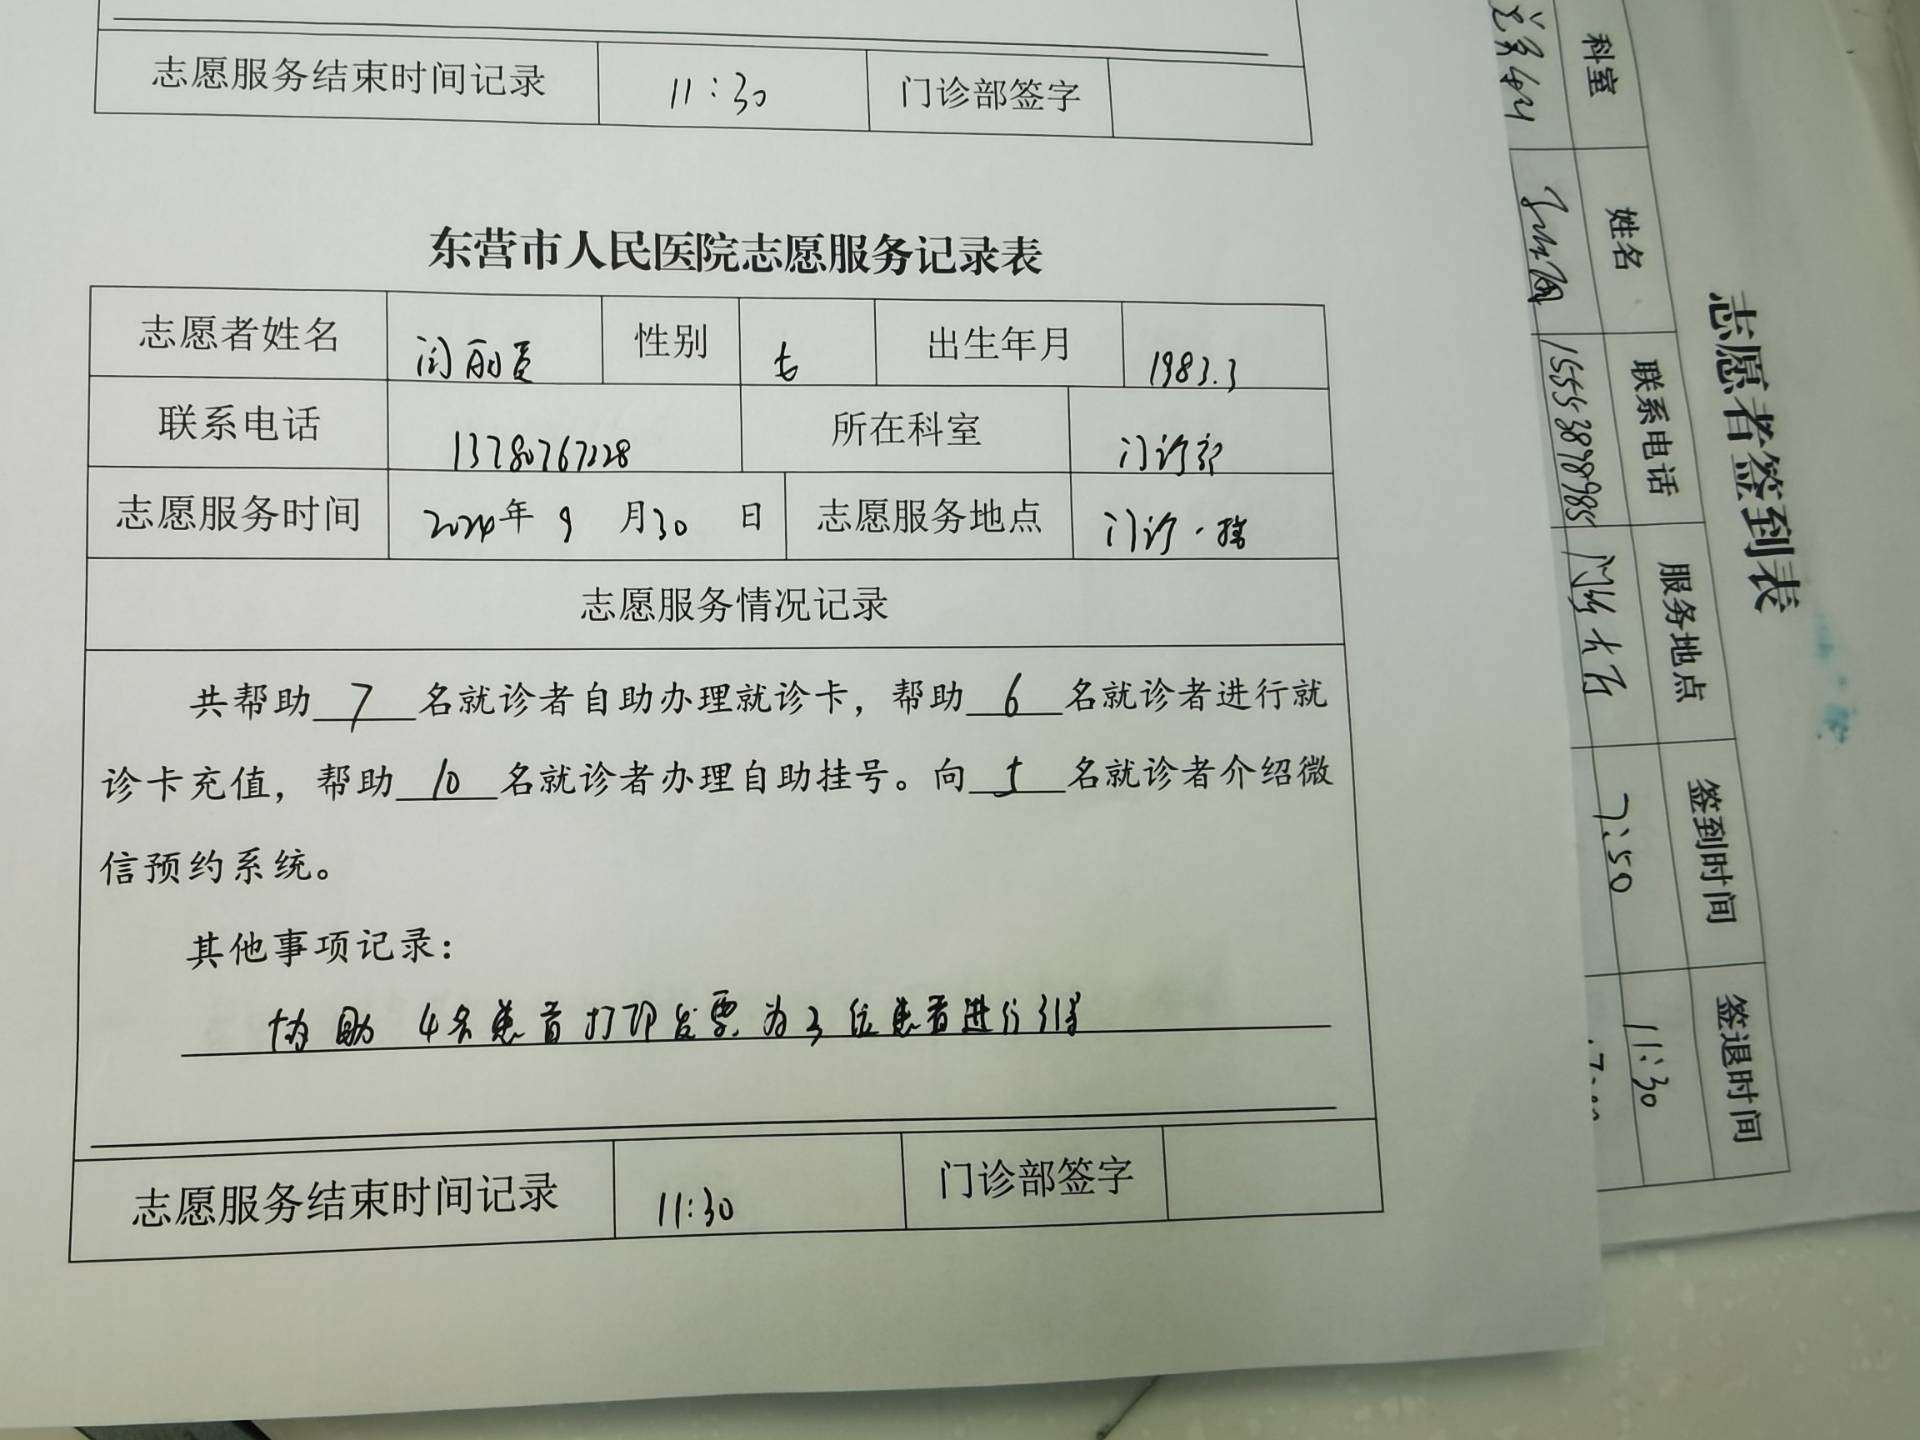 志愿服务结束时间记录 11:30 门诊部签字
东营市人民医院志愿服务记录表
志愿者姓名 闫丽 性别 女 出生年月 1983.3
联系电话 13780767228 所在科室 门诊部
志愿服务时间 2024年 9 月30 日 志愿服务地点 门诊一楼
志愿服务情况记录
共帮助 7 名就诊者自助办理就诊卡，帮助 6 名就诊者进行就
诊卡充值，帮助 10 名就诊者办理自助挂号。向 5 名就诊者介绍微
信预约系统。
其他事项记录：
协助 4名患者打印发票为3位患者进行引导
志愿服务结束时间记录 11:30 门诊部签字
志愿者签到表
科室 姓名 联系电话 服务地点 签到时间 签退时间
15553898985 门诊大厅 7:50 11:30